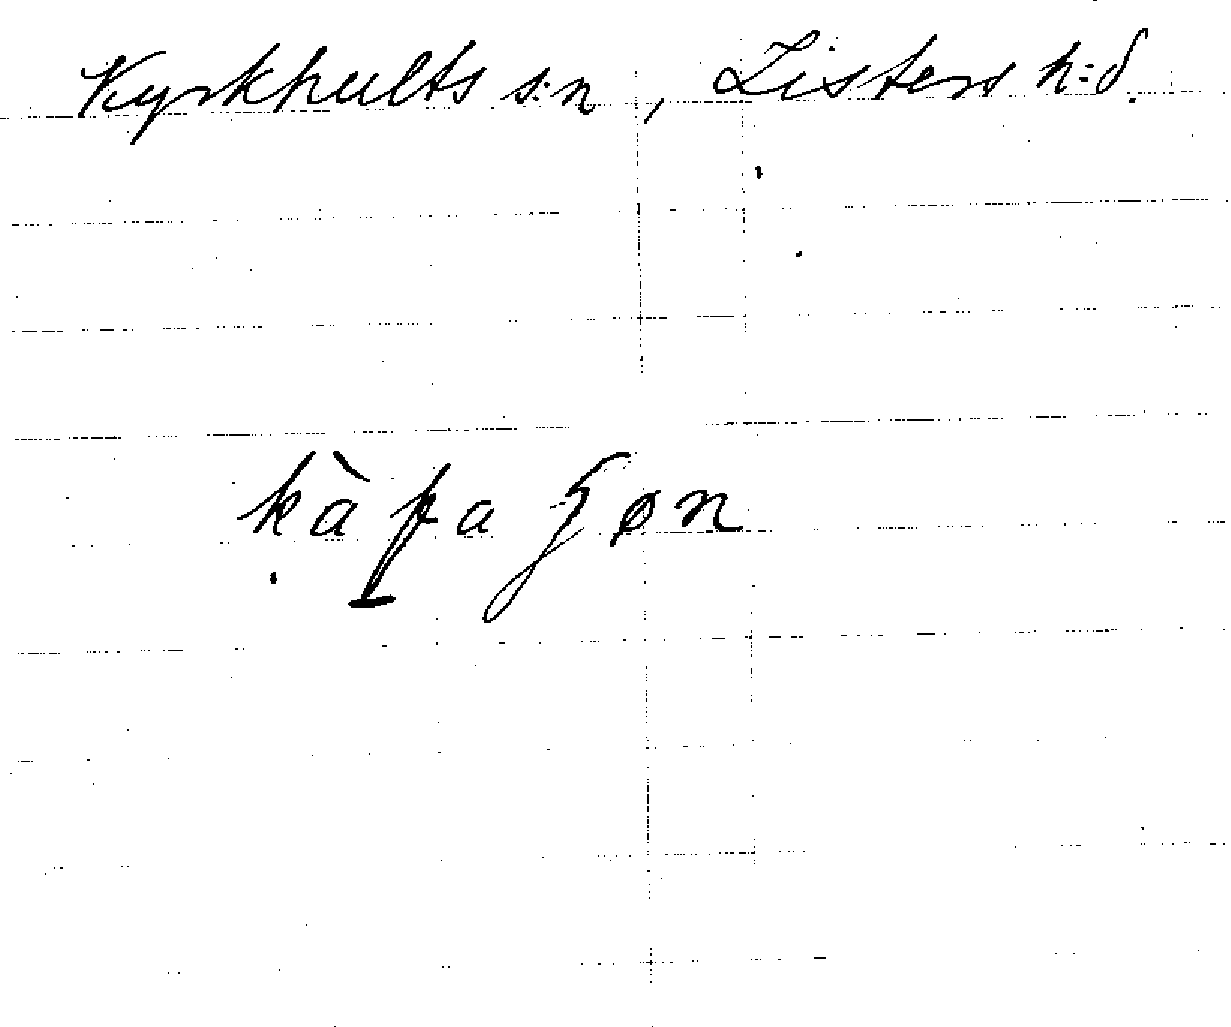 Kyrkhults s:n, Listers h:d.
kàpa ʃøn